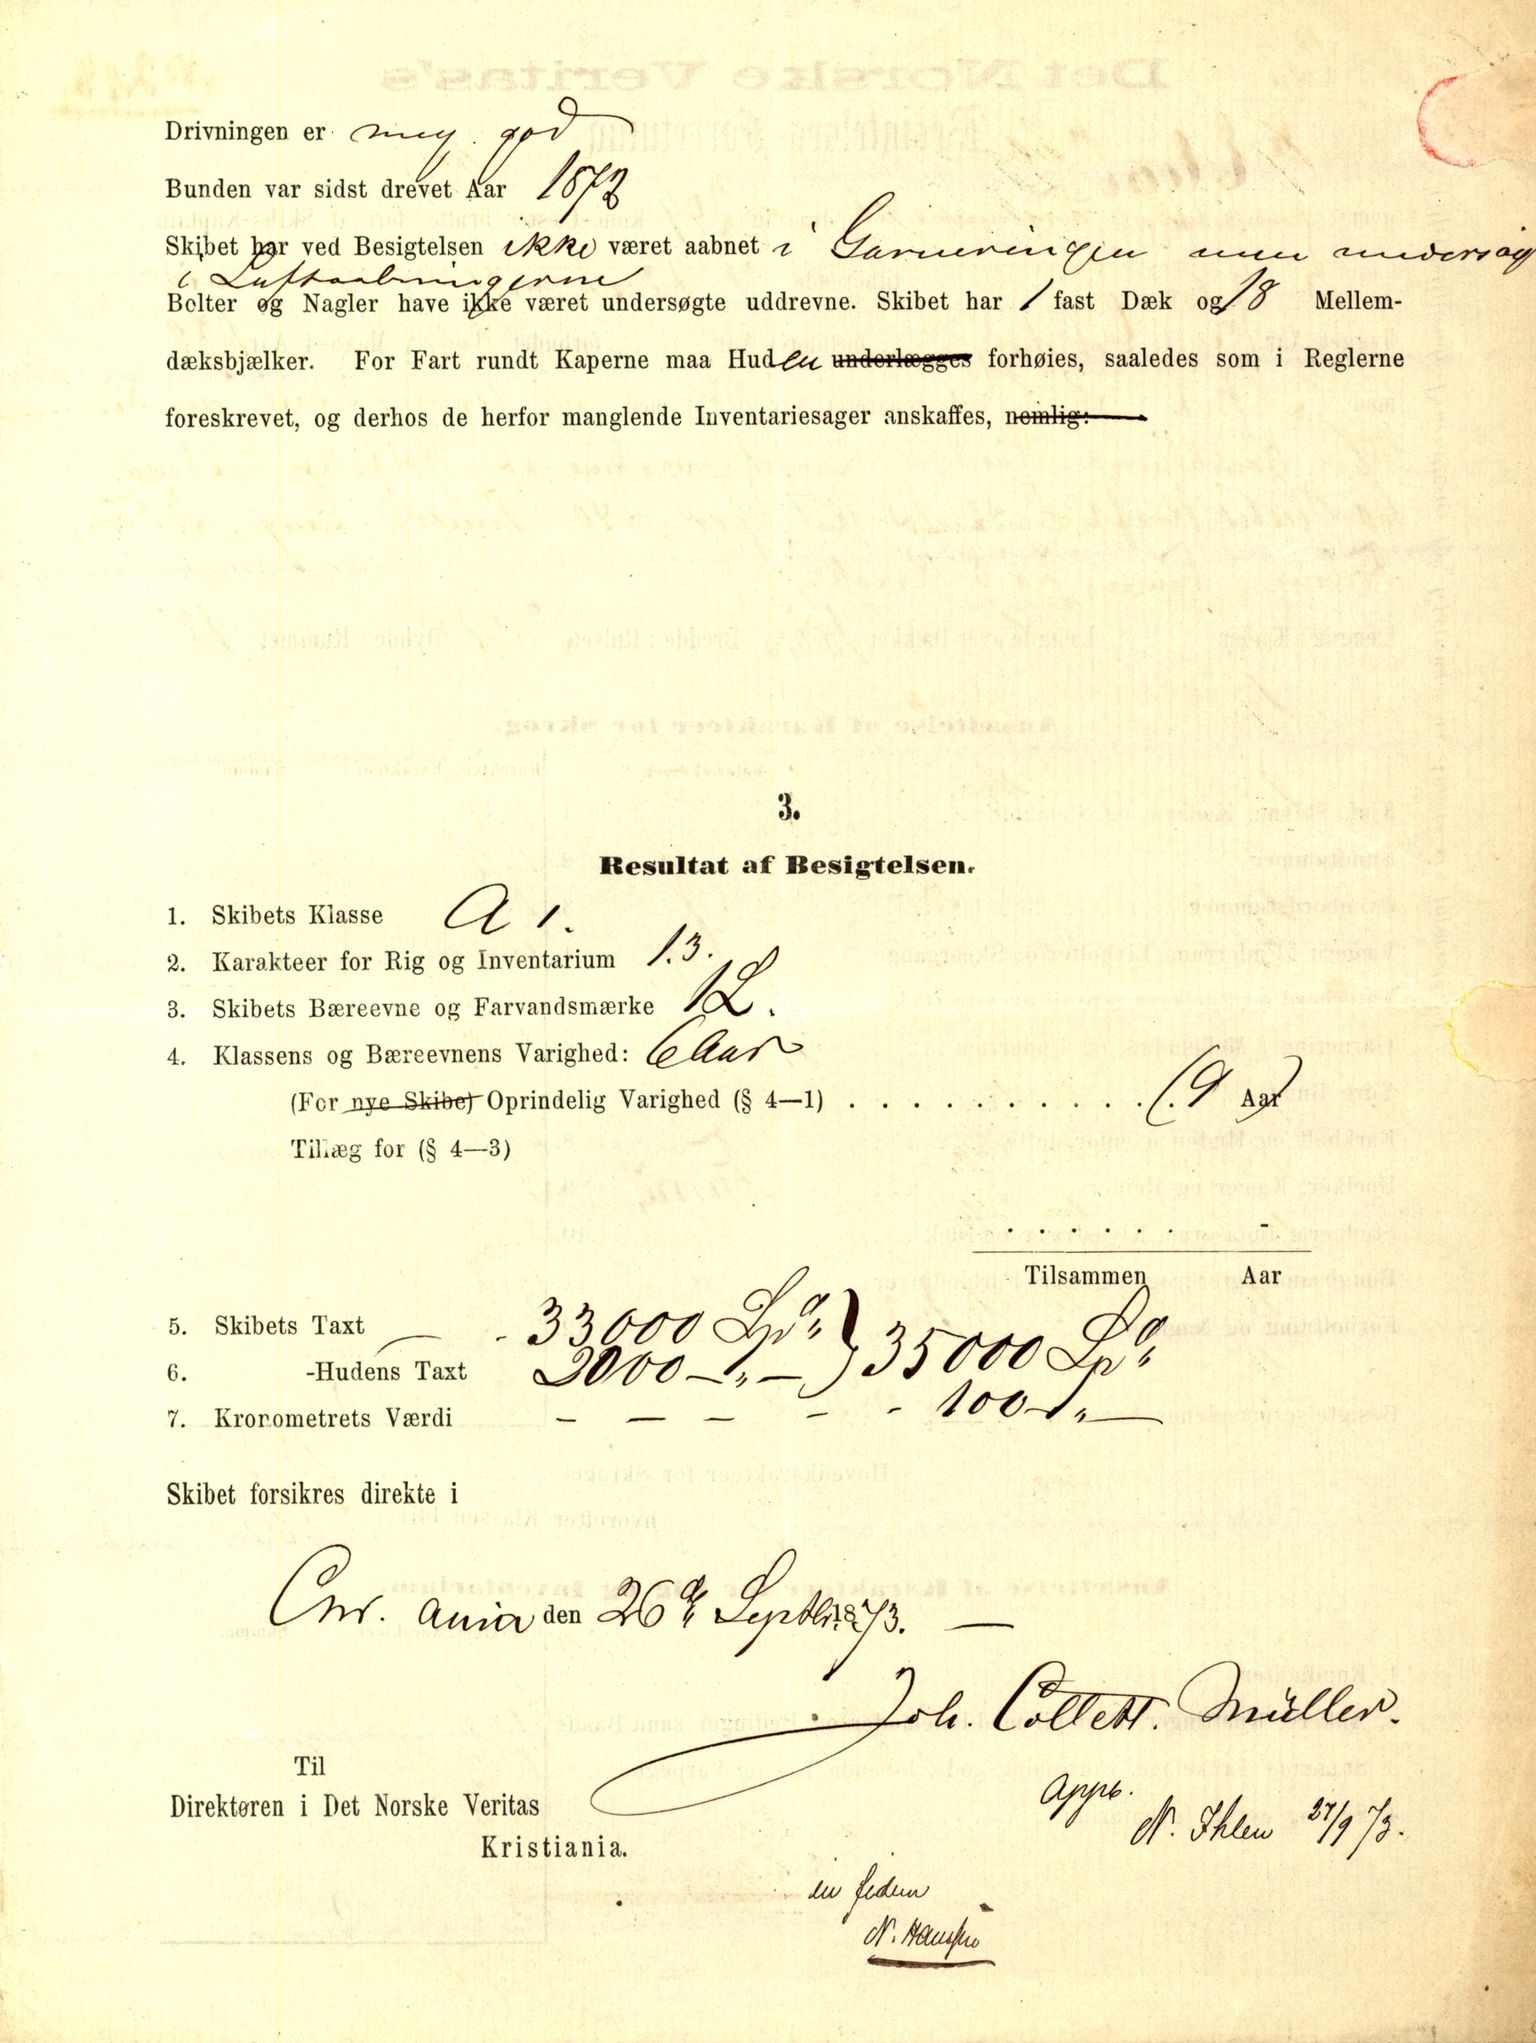 Drivningen er meg. god
Bunden var sidst drevet Aar 1872
Skibet har ved Besigtelsen ikke været aabnet i Garneringen men undersøg
i Luftaabningerne
Bolter og Nagler have ikke været undersøgte uddrevne. Skibet har 1 fast Dæk og 18 Mellem-
dæksbjælker. For Fart rundt Kaperne maa Huden underlægges forhøies, saaledes som i Reglerne
foreskrevet, og derhos de herfor manglende Inventariesager anskaffes, nemlig:
3.
Resultat af Besigtelsen.
1. Skibets Klasse A 1.
2. Karakteer for Rig og Inventarium 1.3.
3. Skibets Bæreevne og Farvandsmærke 1 L.
4. Klassens og Bæreevnens Varighed: 6 Aar
(For nye Skibe) Oprindelig Varighed (§ 4—1) . . . . . . . . . . . (9 Aar)
Tillæg for (§ 4—3)
. . . . . . -
Tilsammen Aar
5. Skibets Taxt - 33000 Spd } 35000 Spd
6. -Hudens Taxt 2000 — " —
7. Kronometrets Værdi — — — — - 100 — " —
Skibet forsikres direkte i
Chr. ania den 26de Septbr. 1873. —
Joh. Collett. Müller.
Til
Direktøren i Det Norske Veritas
Kristiania.
Appb.
N. Ihlen 27/9 73.
in fidem
N. Hanssen